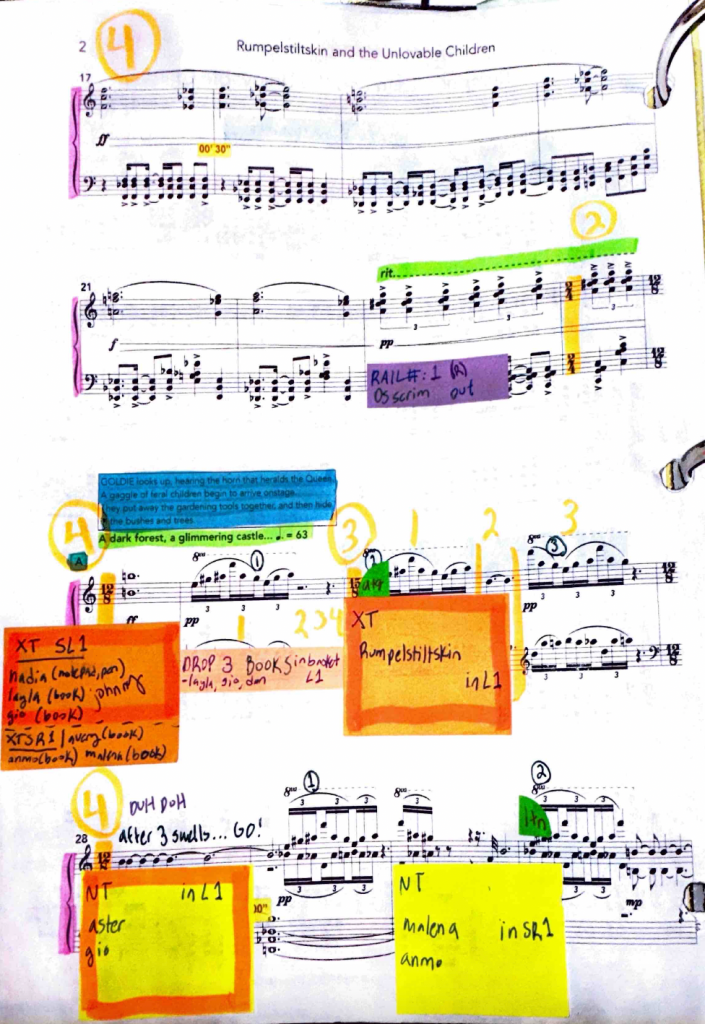 2
4
Rumpelstiltskin and the Unlovable Children
17
ff
00' 30"
2
rit.
21
3
3
3
f
pp
RAIL#: 1 (R)
Os scrim out
GOLDIE looks up, hearing the horn that heralds the Queen.
A gaggle of feral children begin to arrive onstage.
They put away the gardening tools together, and then hide
the bushes and trees.
4
A dark forest, a glimmering castle... = 63
3
1
2
3
A
8va
1
8va
2
8va
3
12/8
15/8
12/8
3
3
3
3
3
3
3
3
3
ff
pp
pp
1
2 3 4
XT SL1
nadia (notepad, pen)
layla (book) johnny
gio (book)
XTSR1 / avery (book)
anmo (book) malena (book)
DROP 3 BOOKS in basket
-layla, gio, dan L1
XT
Rumpelstiltskin
in L1
4
DUH DUH
after 3 swells... GO!
28
8va
1
8va
8va
2
3
3
3
3
3
3
pp
mp
NT in L1
aster
gio
NT
malena in SR1
anmo